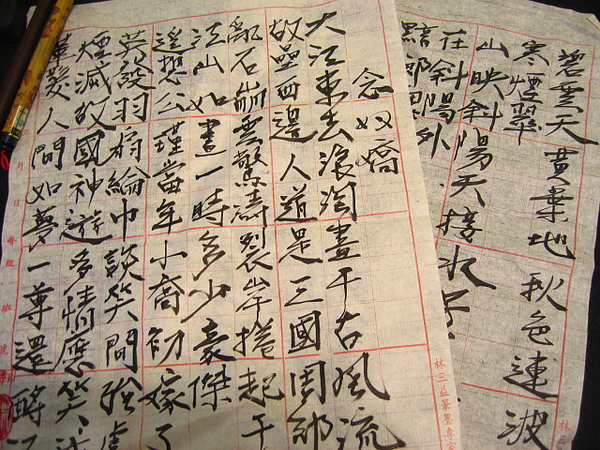 碧雲天 黃葉地 秋色連波
寒煙翠
山映斜陽天接水芳
在斜陽外
黯鄉
念奴嬌
大江東去浪淘盡千古風流
故壘西邊人道是三國周郎
亂石崩雲驚濤裂岸捲起千
江山如畫一時多少豪傑
遙想公瑾當年小喬初嫁了
英發羽扇綸巾談笑間強虜
煙滅故國神遊多情應笑
華髮人間如夢一尊還酹
林三益筆墨專家
月 日 年級 班 號
林三